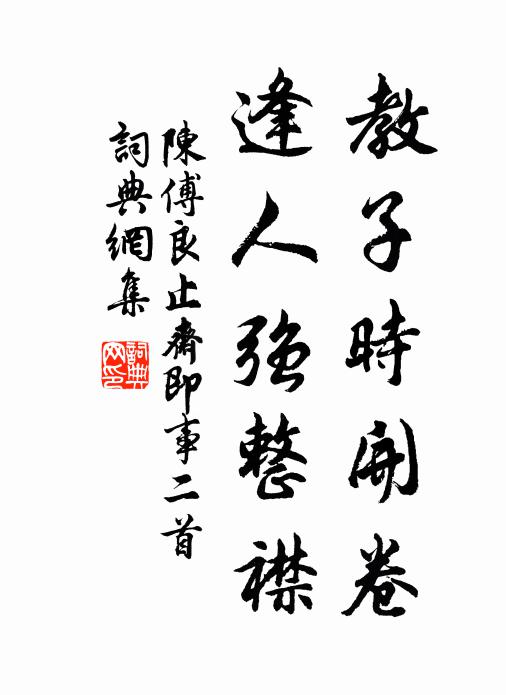 教子時開卷
逢人強整襟
陳傅良止齋即事二首
詞典網集
詞典網印